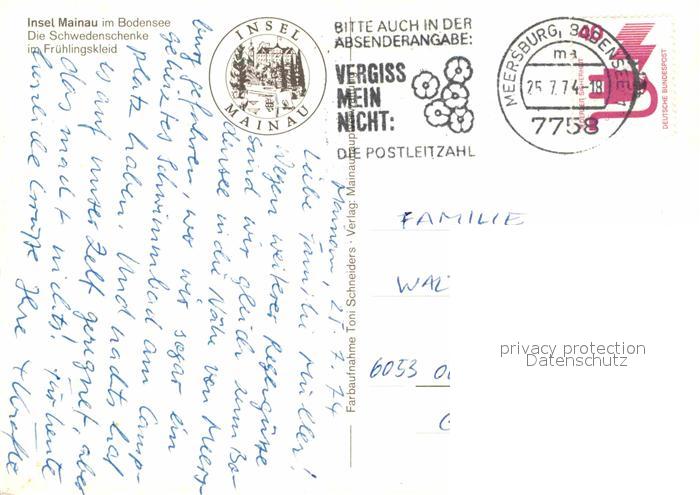 Insel Mainau im Bodensee
Die Schwedenschenke
im Frühlingskleid
INSEL
MAINAU
BITTE AUCH IN DER
ABSENDERANGABE:
VERGISS
MEIN
NICHT:
DIE POSTLEITZAHL
MEERSBURG, BODENSEE
ma
25.7.74-18
7758
40
DEUTSCHE BUNDESPOST
Farbaufnahme Toni Schneiders · Verlag: Mainau
21.7.74
Liebe Familie Müller!
Wegen weiterer Regengüsse
sind wir gleich zum Bo-
densee in die Nähe von Meers-
burg gefahren, wo wir sogar ein
geheiztes Schwimmbad am Camp-
platz haben. Und nachts hat
es auf unser Zelt geregnet, aber
das macht nichts! Für heute
herzliche Grüße Ihre
FAMILIE
WAL
6053 O
privacy protection
Datenschutz